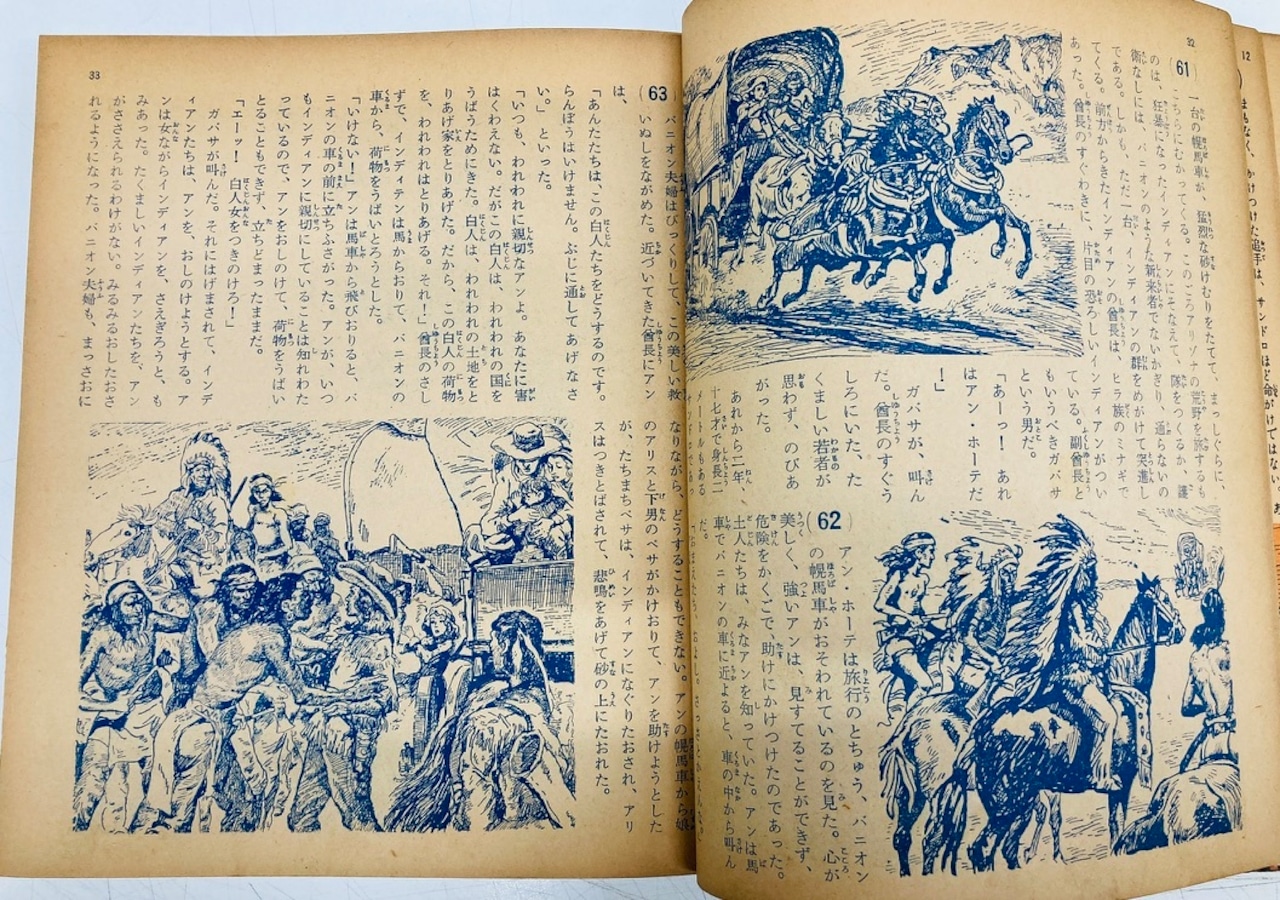 12
まもなく、かけつけた追手は、サンドロほど命がけではない
32
(61) 一台の幌馬車が、猛烈な砂けむりをたてて、まっしぐらに、
こちらにむかってくる。このごろアリゾナの荒野を旅するも
のは、狂暴になったインディアンにそなえて、隊をつくるか、護
衛なしには、バニオンのような新来者でないかぎり、通らないの
である。しかも、ただ一台、インディアンの群をめがけて突進し
てくる。前方からきたインディアンの酋長は、ヒラ族のミナギで
あった。酋長のすぐわきに、片目の恐ろしいインディアンがつい
ている。副酋長と
もいうべきガバサ
という男だ。
「あーっ! あれ
はアン・ホーテだ
!」
ガバサが、叫ん
だ。酋長のすぐう
しろにいた、た
くましい若者が
思わず、のびあ
がった。
あれから二年、
十七才で身長二
メートルもある
サンドロであっ
(62) アン・ホーテは旅行のとちゅう、バニオン
の幌馬車がおそわれているのを見た。心が
美しく、強いアンは、見すてることができず、
危険をかくごで、助けにかけつけたのであった。
土人たちは、みなアンを知っていた。アンは馬
車でバニオンの車に近よると、車の中から叫ん
だ。
33
(63) バニオン夫婦はびっくりして、この美しい救
いぬしをながめた。近づいてきた酋長にアン
は、
「あんたたちは、この白人たちをどうするのです。
らんぼうはいけません。ぶじに通してあげなさ
い。」といった。
「いつも、われわれに親切なアンよ。あなたに害
はくわえない。だがこの白人は、われわれの国を
うばうためにきた。白人は、われわれの土地をと
りあげ家をとりあげた。だから、この白人の荷物
を、われわれはとりあげる。それ!」酋長のさし
ずで、インディテンは馬からおりて、バニオンの
車から、荷物をうばいとろうとした。
「いけない!」アンは馬車から飛びおりると、バ
ニオンの車の前に立ちふさがった。アンが、いつ
もインディアンに親切にしていることは知れわた
っているので、アンをおしのけて、荷物をうばい
とることもできず、立ちどまったままだ。
「エーッ! 白人女をつきのけろ!」
ガバサが叫んだ。それにはげまされて、インデ
ィアンたちは、アンを、おしのけようとする。ア
ンは女ながらインディアンを、さえぎろうと、も
みあった。たくましいインディアンたちを、アン
がささえられるわけがない。みるみるおしたおさ
れるようになった。バニオン夫婦も、まっさおに
なりながら、どうすることもできない。アンの幌馬車から娘
のアリスと下男のベサがかけおりて、アンを助けようとした
が、たちまちベサは、インディアンになぐりたおされ、アリ
スはつきとばされて、悲鳴をあげて砂の上にたおれた。